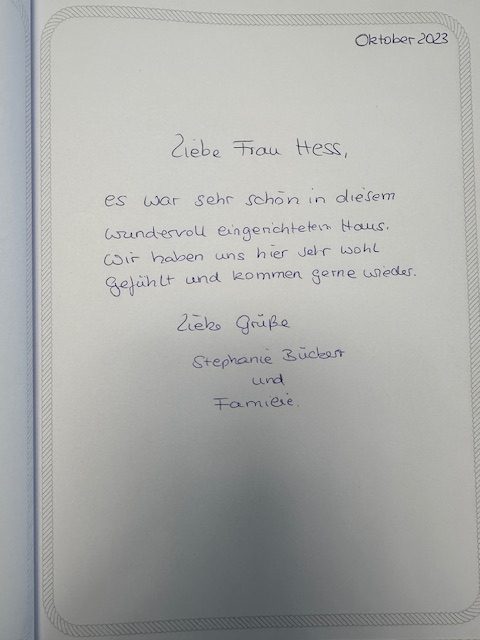 Oktober 2023
Liebe Frau Hess,
es war sehr schön in diesem
wundervoll eingerichteten Haus.
Wir haben uns hier sehr wohl
gefühlt und kommen gerne wieder.
Liebe Grüße
Stephanie Bückert
und
Familie.